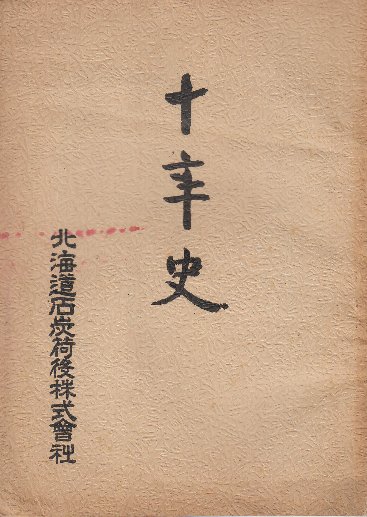 十年史
北海道石炭荷役株式會社